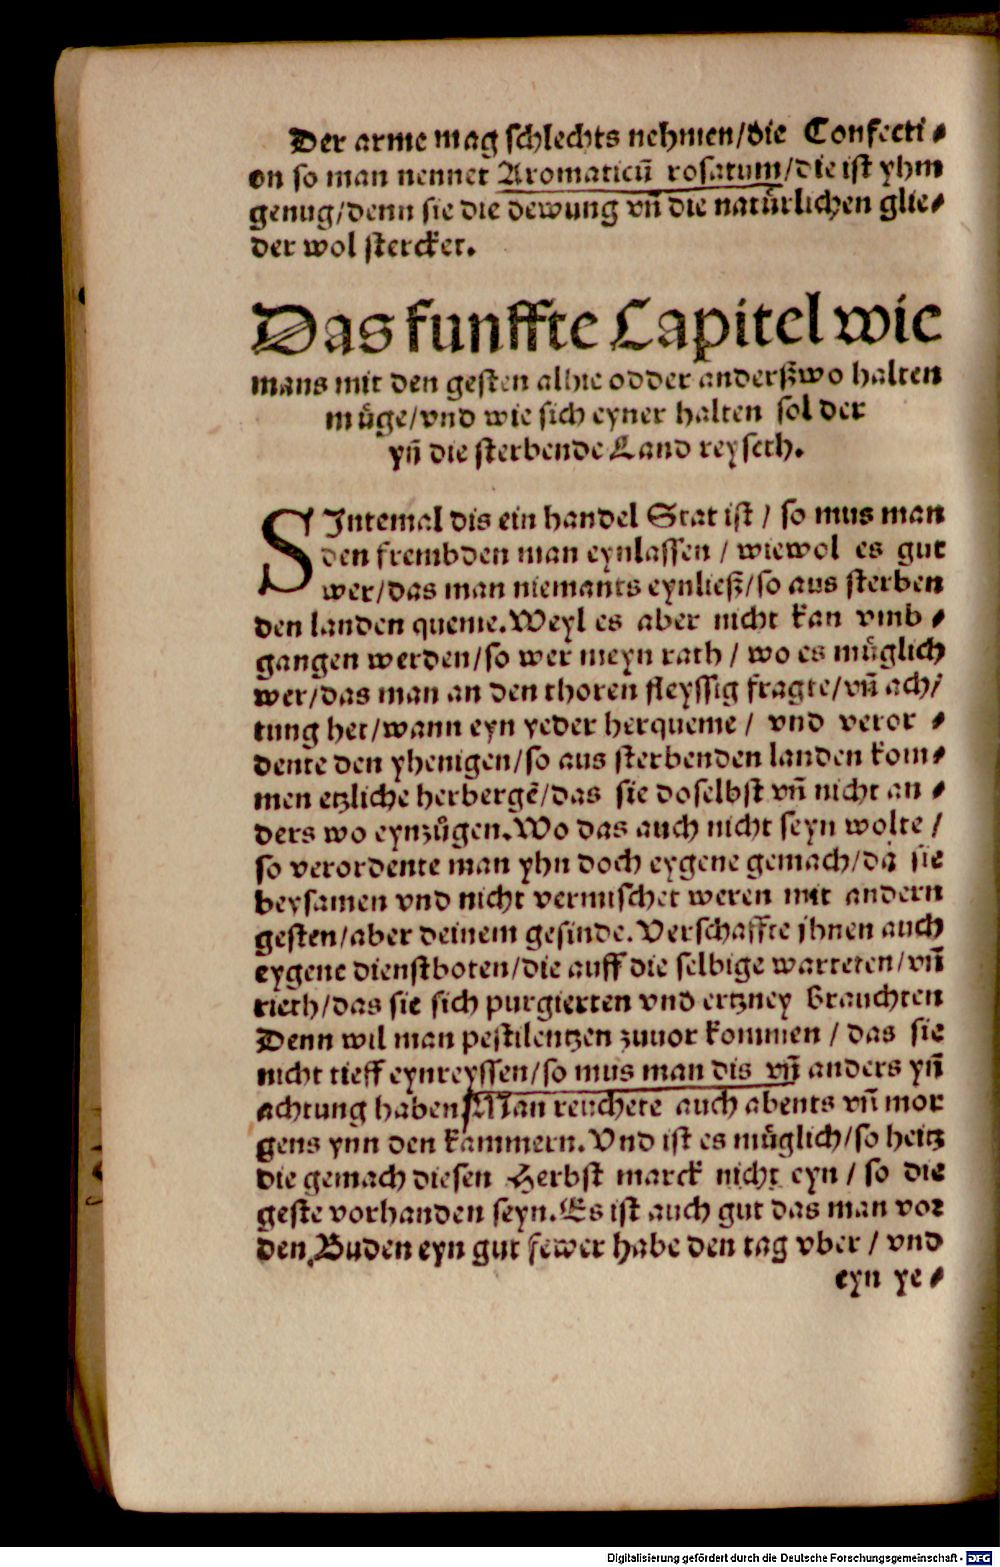 Der arme mag schlechts nehmen/die Confecti⸗
on so man nennet Aromaticū rosatum/die ist yhm
genug/denn sie die dewung vñ die natůrlichen glie⸗
der wol stercket.
Das funffte Capitel wie
mans mit den gesten alhie odder anderßwo halten
můge/vnd wie sich eyner halten sol der
yñ die sterbende Land reyseth.
SJntemal dis ein handel Stat ist / so mus man
den frembden man eynlassen / wiewol es gut
wer/das man niemants eynließ/so aus sterben
den landen queme. Weyl es aber nicht kan vmb⸗
gangen werden/so wer meyn rath / wo es můglich
wer/das man an den thoren fleyssig fragte/vñ ach/
tung het/wann eyn yeder herqueme / vnd veror⸗
dente den yhenigen/so aus sterbenden landen kom⸗
men etzliche herbergē/das sie doselbst vñ nicht an⸗
ders wo eynzůgen. Wo das auch nicht seyn wolte /
so verordente man yhn doch eygene gemach/da sie
beysamen vnd nicht vermischet weren mit andern
gesten/aber deinem gesinde. Verschaffte jhnen auch
eygene dienstboten/die auff die selbige warteten/vñ
rieth/das sie sich purgierten vnd ertzney brauchten
Denn wil man pestilentzen zuuor kommen / das sie
nicht tieff eynreyssen/so mus man dis vñ anders yñ
achtung haben Man reuchete auch abents vñ mor
gens ynn den kammern. Vnd ist es můglich/so heitz
die gemach diesen Herbst marck nicht eyn / so die
geste vorhanden seyn. Es ist auch gut das man vor
den Buden eyn gut fewer habe den tag vber / vnd
eyn ye⸗
Digitalisierung gefördert durch die Deutsche Forschungsgemeinschaft - DFG